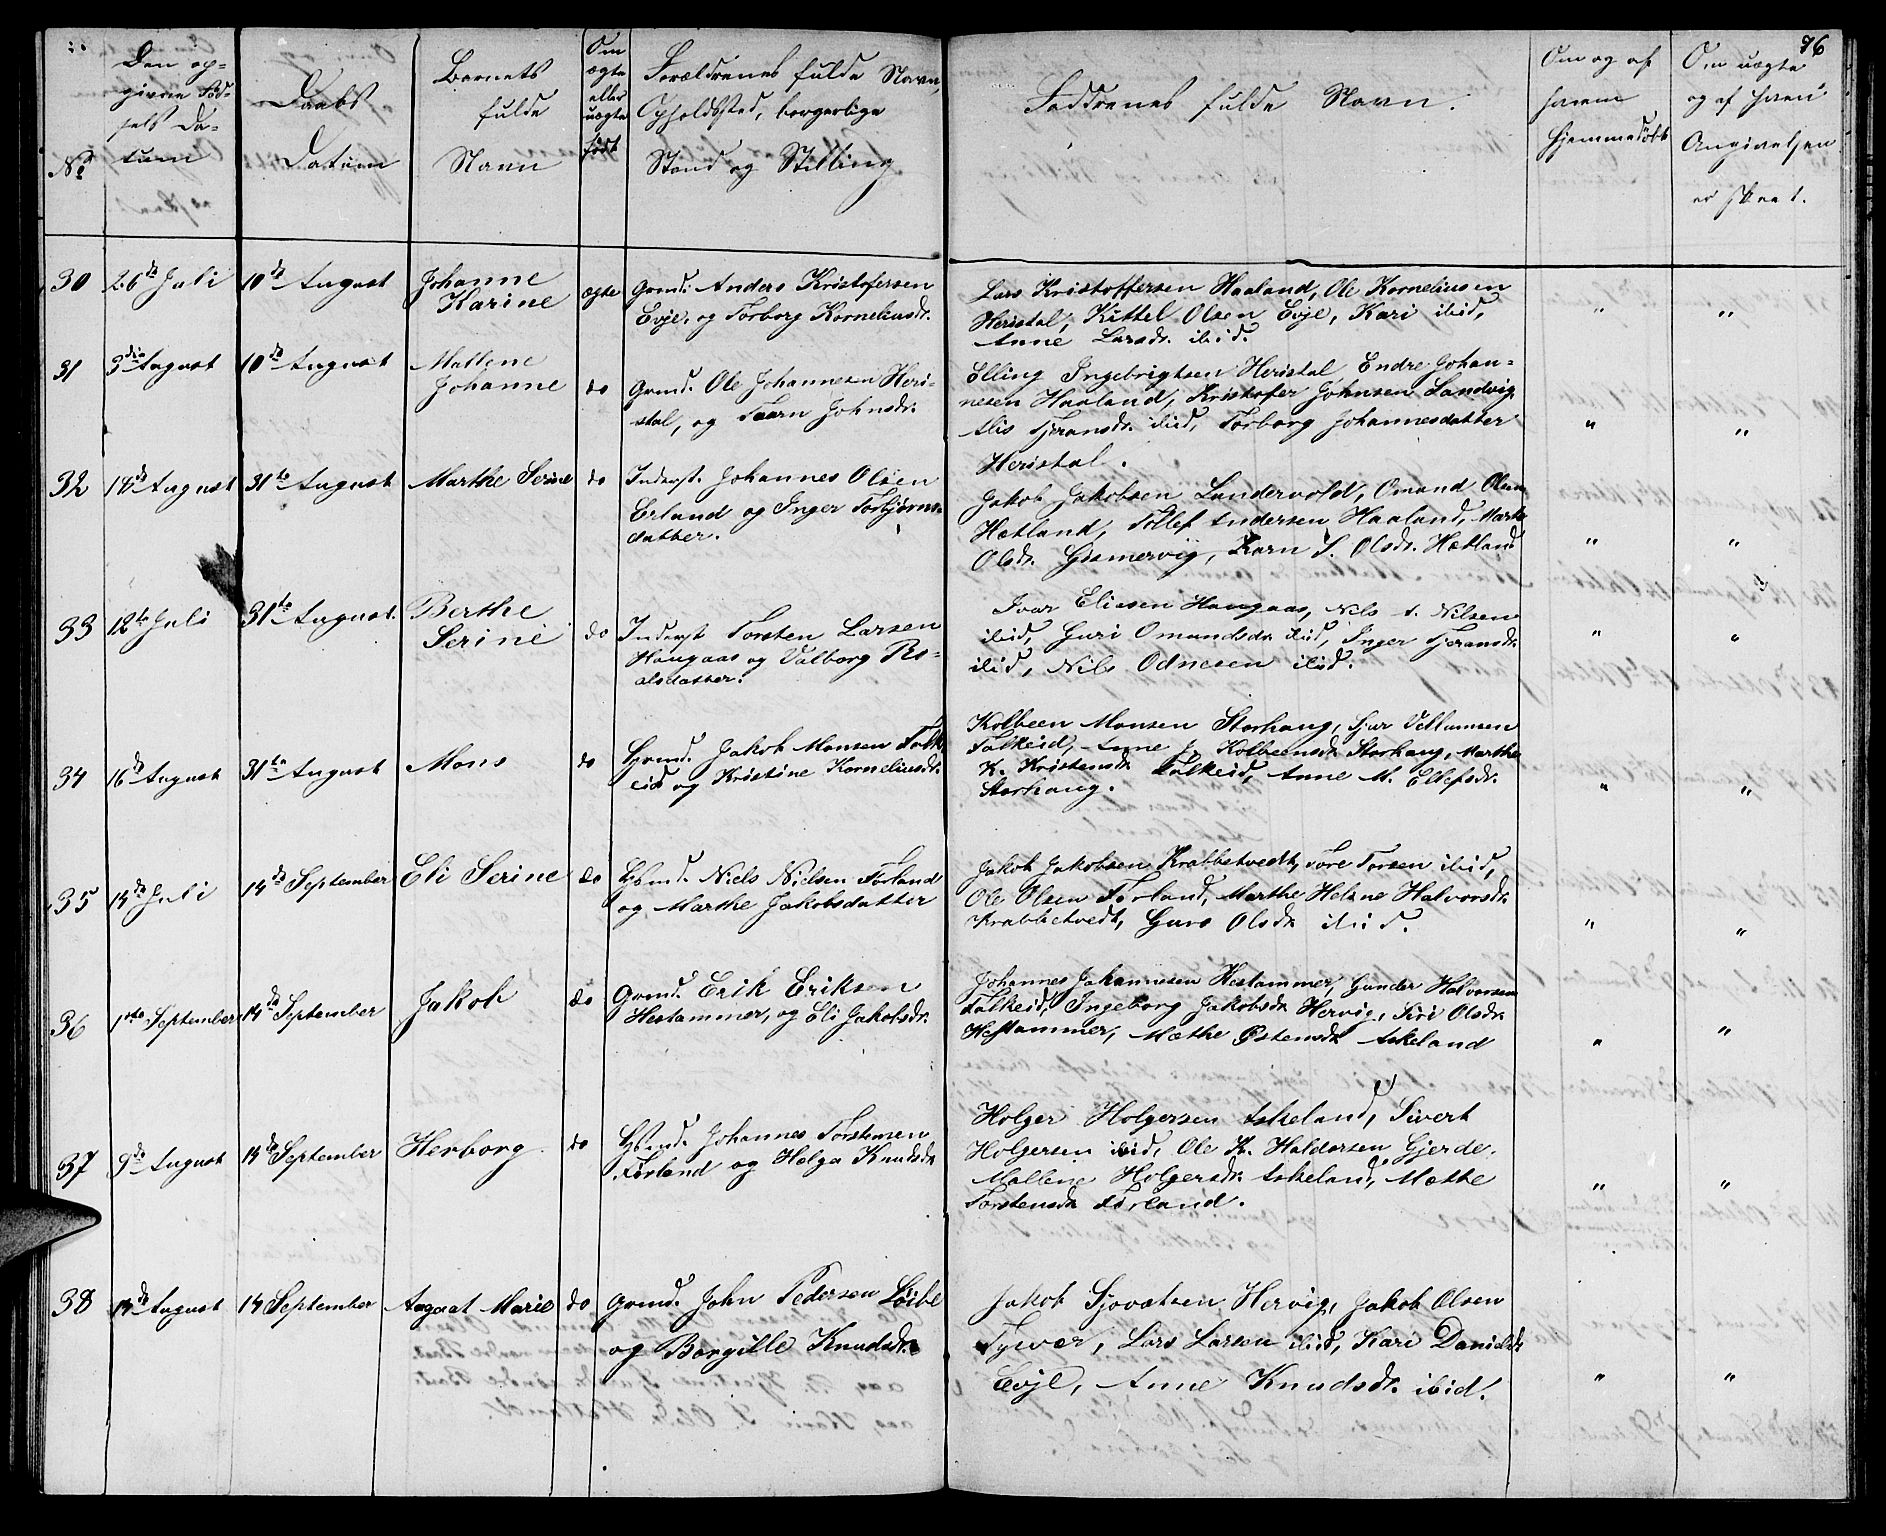 76
No
Den op-
givne Fød-
sels Da-
tum
Daabs
Datum
Barnets
fulde
Navn
Om
ægte
eller
uægte
født
Forældrenes fulde Navn,
Opholdssted, borgerlige
Stand og Stilling
Faddrenes fulde Navn.
Om og af
hvem
hjemmedøbt
Om uægte
og af hvem
Angivelsen
er skeet.
30 26de Juli 10de August Johanne
Karine ægte
Grmd. Anders Kristofersen
Evje, og Torborg Korneliusdr.
Lars Kristoffersen Haaland, Ole Korneliusen
Heristal, Kittel Olsen Evje, Kari ibid,
Anne Larsdr. ibid. " "
31 3die August 10de August Mallene
Johanne do
Grmd. Ole Johannesen Heri-
stal, og Taarn Johnsdr.
Elling Ingebrigtsen Heristal Endre Johan-
nesen Haaland, Kristofer Johnsen Sandvig
Alis Tjeransdr. ibid, Torborg Johannesdatter
Heristal. " "
32 18de August 31te August Marthe Serine do
Inderst. Johannes Olsen
Erland og Inger Torbjørns-
datter.
Jakob Jakobsen Landervold, Omund Olsen
Hætland, Tollef Andersen Haaland, Marta
Olsdr. Grømervig, Karn S. Olsdr. Hætland " "
33 12te Juli 31te August. Berthe
Serine do
Inderst Torsten Larsen
Haugaas og Valborg
alsdatter.
Ivar Eliasen Haugaas, Nils A. Nilsen
ibid, Guri Omundsdr. ibid, Inger Tjeransdr.
ibid, Nils Odnesen ibid. " "
34 16de August 31te August Mons do
Grmd. Jakob Monsen Falk-
eid og Kristine Korneliusdr.
Kolbeen Monsen Storhaug, Sjur Vellumsen
Falkeid, Anne J. Kolbeensdr. Storhaug, Marthe
K. Kristensdr. Falkeid, Anne M. Ellefsdr.
Storhaug. " "
35 14de Juli 14de September Eli Serine do
Hsmd. Niels Nielsen Førland
og Marthe Jakobsdatter
Jakob Jakobsen Krabbetvedt, Tore Torsen ibid,
Ole Olsen Førland, Marthe Helene Halvorsdr.
Krabbetvedt, Guro Olsdr. ibid. " "
36 1ste September 14de September Jakob do
Grmd. Erik Eriksen
Hestammer, og Eli Jakobsdr.
Johannes Johannesen Hestammer, Gunder Halvorsen
Falkeid, Ingeborg Jakobsdr. Hervig, Siri Olsdr.
Hestammer, Mæthe Østensdr. Askeland " "
37 9de August 14de September Herborg do
Hsmd. Johannes Torstensen
Førland og Helga Knudsdr.
Holger Holgersen Askeland, Sivert
Holgersen ibid, Ole K. Haldorsen Gjerde.
Mallene Holgersdr. Askeland, Mæthe
Torstensdr. Førland. " "
38 14de August 14 September August Marie do
Grmd. John Pedersen Løibl
og Borgille Knudsdr.
Jakob Sjovatsen Hervig, Jakob Olsen
Tysvær, Lars Larsen ibid, Kari Danielsdr.
Evje, Anne Knudsdr. ibid. " "